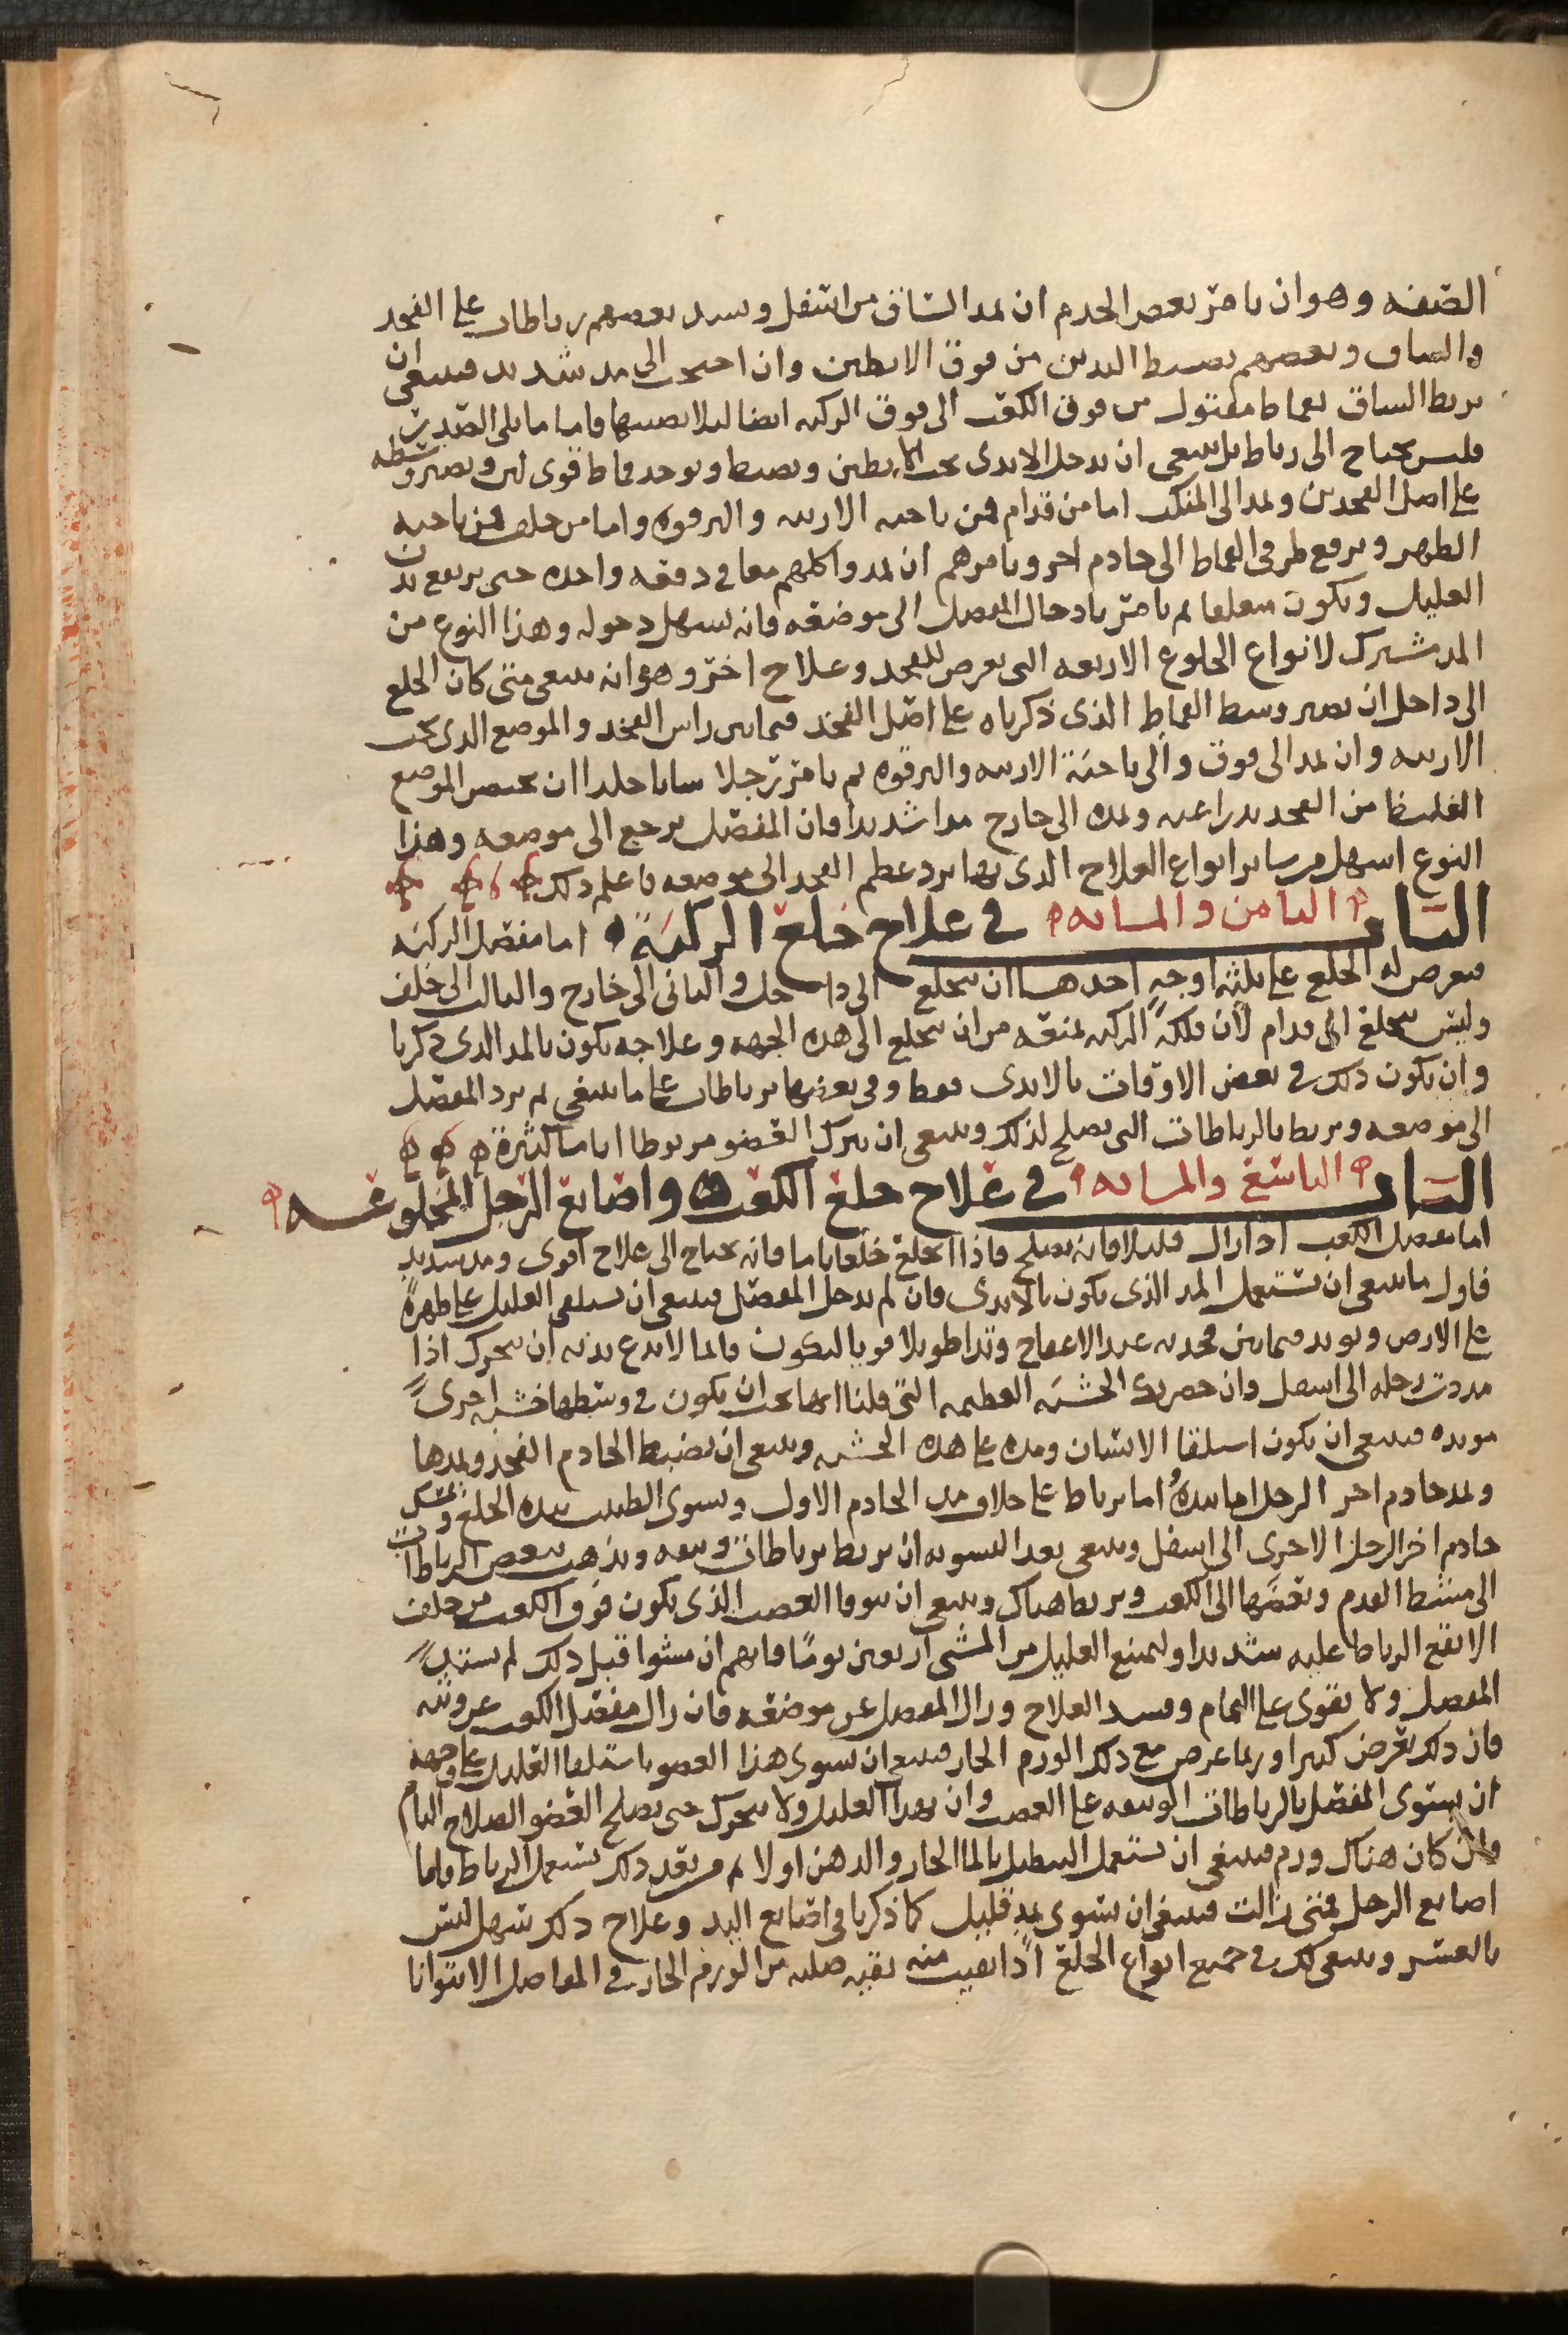 الصفه وهو ان يامر بعض الخدم ان يمد الساق من اسفل ويشد بعضهم رباطات على الفخذ
والساق وبعضهم يضبط اليدين من فوق الابطين وان احتجت الى مد شديد فينبغي ان
يربط الساق بقماط مفتول من فوق الكعب الى فوق الركبه ايضا ليلا يصيبها فاما ما يلي الصدر
فليس يحتاج الى رباط بل ينبغي ان يدخل الايدي تحت الابطين ويضبط ويوخد قماط قوي لين ويصير وسطه
على اصل الفخدين ويمد الى المنكب اما من قدام فمن ناحيه الاربيه والترقوه واما من خلف فمن ناحيه
الظهر ويرفع طرفي القماط الى خادم اخر ويامرهم ان يمدوا كلهم معا في دفعه واحده حتى يرتفع بدن
العليل ويكون معلقا ثم يامر بادخال المفصل الى موضعه فانه يسهل دخوله وهذا النوع من
المد مشترك لانواع الخلوع الاربعه التي يعرض للفخد وعلاج اخر وهو انه ينبغي متى كان الخلع
الى داخل ان يصير وسط القماط الذي ذكرناه على اصل الفخذ فيما بين راس الفخد والموضع الدي تحت
الاربيه وان يمد الى فوق والى ناحية الاربيه والترقوه ثم يامر رجلا شابا جلدا ان يحتضن الموضع
الغليظ من الفخد بدراعيه ويمده الى خارج مدا شديدا فان المفصل يرجع الى موضعه وهذا
النوع اسهل من ساير انواع العلاج الدي بها يرد عظم الفخد الى موضعه فاعلم دلك
الباب الثامن والمايه في علاج خلع الركبة اما مفصل الركبه
فيعرض له الخلع على ثلثه اوجه احدها ان ينخلع الى داخل والثاني الى خارج والثالث الى خلف
وليس ينخلع الى قدام لان فلكة الركبه تمنعه من ان ينخلع الى هذه الجهه وعلاجه يكون بالمد الدي ذكرنا
وان يكون ذلك في بعض الاوقات بالايدي فقط وفي بعضها برباطات على ما ينبغي ثم يرد المفصل
الى موضعه ويربط بالرباطات التي يصلح لذلك وينبغي ان يترك العضو مربوطا اياما كثيرة
الباب التاسع والمايه في علاج خلع الكعب واصابع الرجل المخلوعه
اما مفصل الكعب ادا زال قليلا فانه يصلح فاذا انخلع خلعا تاما فانه يحتاج الى علاج اقوى ومد شديد
فاول ما ينبغي ان تستعمل المد الذي يكون بالايدي فان لم يدخل المفصل فينبغي ان يستلقي العليل على ظهره
على الارض ويوتد فيما بين فخديه عند الاعفاج وتدا طويلا قويا ليكون مانعا لا يدع بدنه ان يتحرك اذا
مددت رجله الى اسفل وان حضرتك الخشبه العظيمه التي قلنا انها يجب ان يكون في وسطها خشبه اخرى
موتده فينبغي ان يكون استلقا الانسان ومده على هذه الخشبه وينبغي ان يضبط الخادم الفخذ ويمدها
ويمد خادم اخر الرجل اما بيده اما برباط على خلاف مد الخادم الاول ويسوي الطبيب بيده الخلع ويمسك
خادم اخر الرجل الاخرى الى اسفل وينبغي بعد التسويه ان يربط برباطات وثيقه ويذهب ببعض الرباطات
الى مشط القدم وبعضها الى الكعب ويربط هناك وينبغي ان يتوقا العصب الذي يكون فوق الكعب من خلف
الا يقع الرباط عليه شديدا وليمنع العليل من المشي اربعين يوما فانهم ان مشوا قبل دلك لم يستتد
المفصل ولا يقوى على التمام وفسد العلاج وزال المفصل عن موضعه فان زال مفصل الكعب عن وثبه
فان دلك يعرض كثيرا وربما عرض مع دلك الورم الحار فينبغي ان يسوى هذا العضو باستلقا العليل على وجهه
ان يستوي المفصل بالرباطات الوثيقه على العصب وان يهدا العليل ولا يتحرك حتى يصلح العضو الصلاح التام
وان كان هناك ورم فينبغي ان تستعمل التنطيل بالما الحار والدهن اولا ثم من بعد دلك تستعمل الرباط واما
اصابع الرجل فمتى زالت فينبغي ان تسوى بمد قليل كما ذكرنا في اصابع اليد وعلاج دلك سهل ليس
بالعسر وينبغي لك في جميع انواع الخلع اذا بقيت منه بقيه صلبه من الورم الحار في المفاصل الا يتوانا